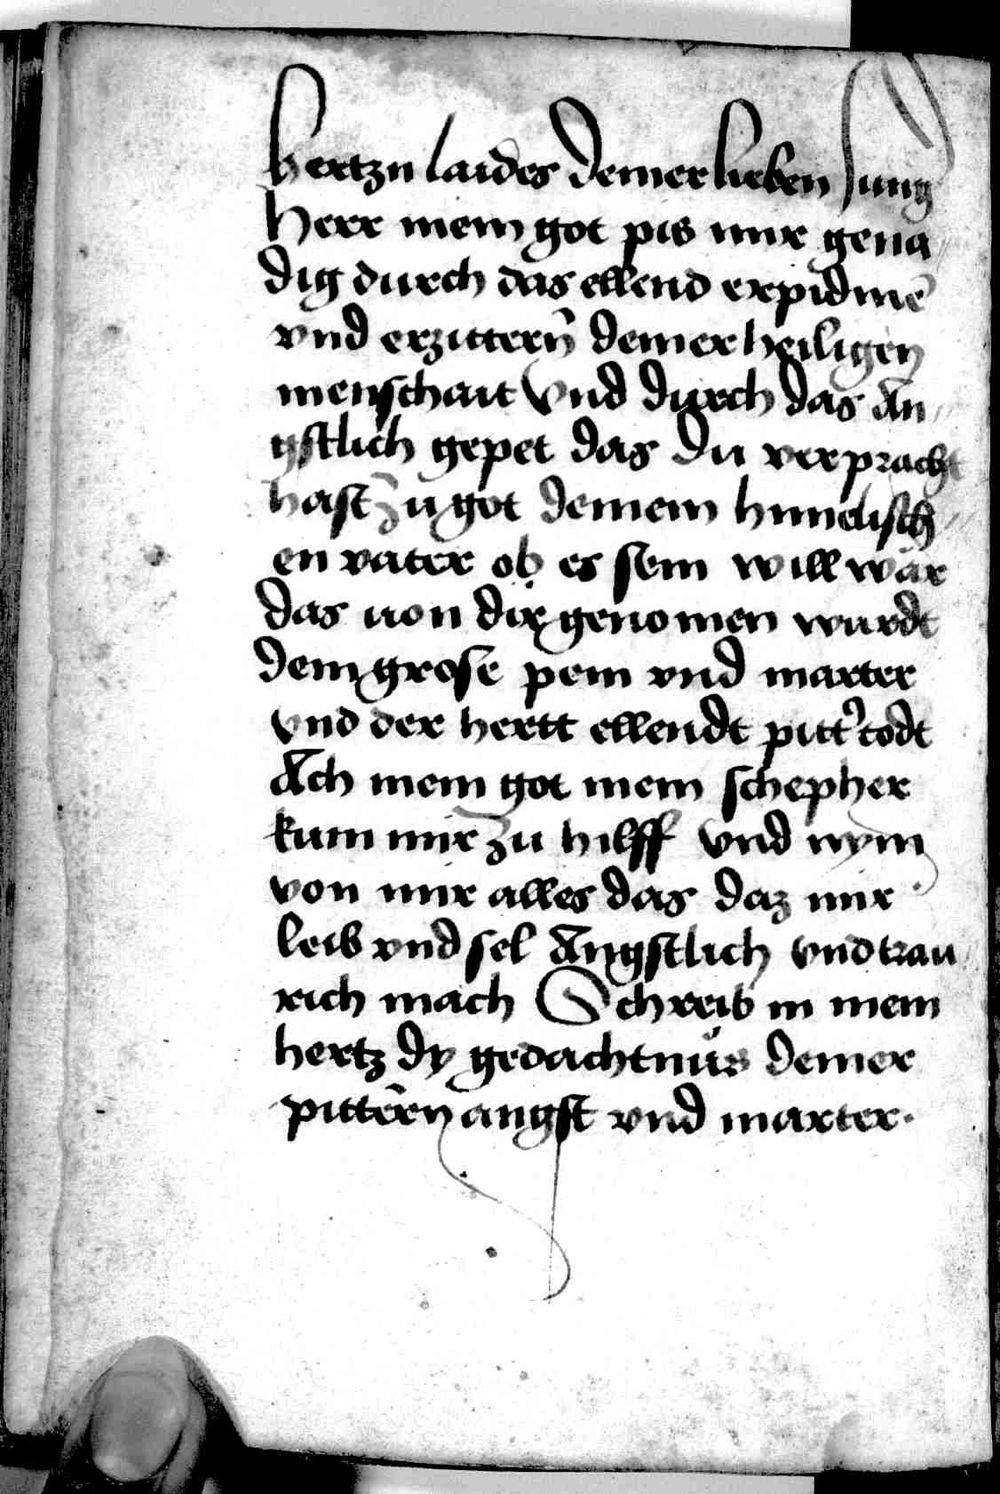 hertzn laides deiner lieben Jung
Herr mein got pis mir gena
dig durch das ellend erpidmē
vnd erzittern̄ deiner heiligen
menschait Vnd durch das An
gstlich gepet das du verpracht
hast zu got deinem himelisch
en vater ob es sein will wär
das uon dir genomen wurdt
dein grose pein vnd marter
vnd der hertt ellendt pitt᾽ todt
Ach mein got mein schepher
kum mir zu hilff vnd nym
von mir alles das daz mir
leib vnd sel Angstlich vnd trau
rich mach Schreib in mein
hertz dy gedachtnus deiner
pittern̄ angst vnd marter.